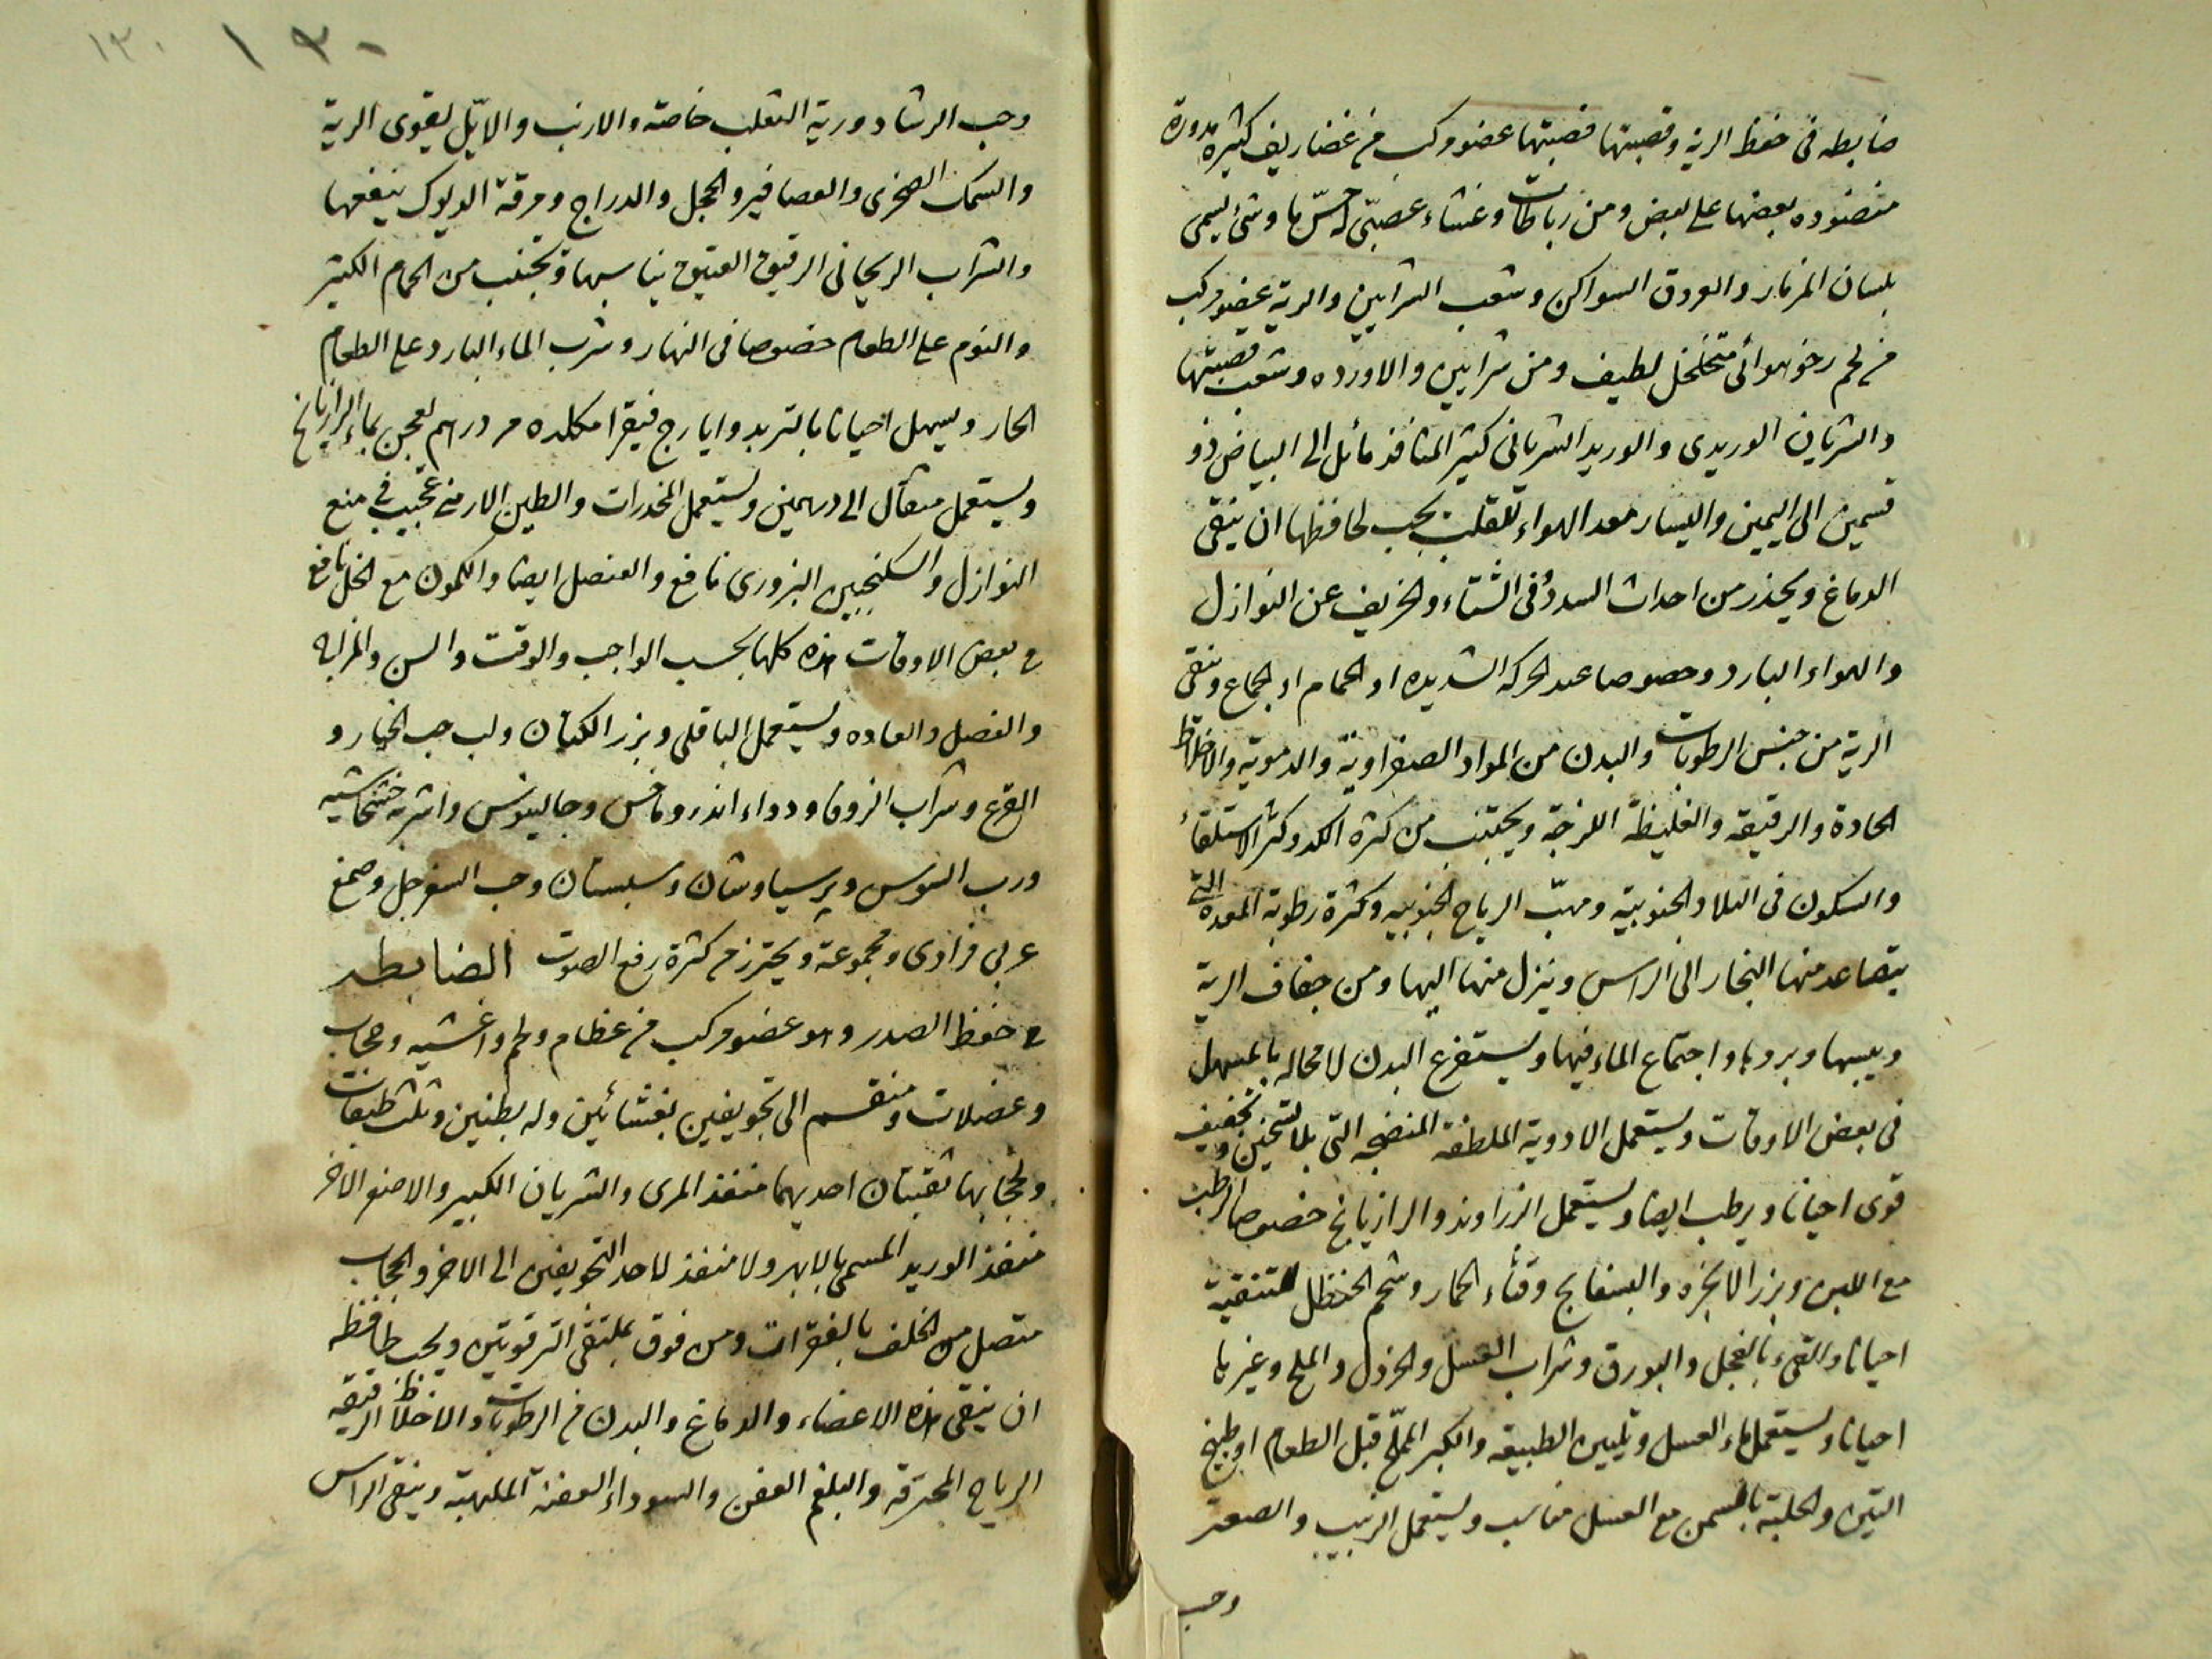 ضابطه فی حفظ الریة وقصبتها قصبتها عضو مرکب من غضاریف کثیره مدورة
منضوده بعضها علی بعض ومن رباطات وغشاء عصبیّ له حسّ ما وشئ یسمی
بلسان المزمار والعروق السواکن وشعب الشرایین والریة عضو مرکب
من لحم رخو هوائی متخلخل لطیف ومن شرایین والاورده وشعب قصبتها
والشریان الوریدی والورید الشریانی کثیر المنافذ مائل الی البیاض ذو
قسمین الی الیمین والیسار معد الهواء للقلب یجب لحافظها ان ینقی
الدماغ ویحذر من احداث السدد فی الشتاء والخریف عن النوازل
والهواء البارد وخصوصا عند الحرکه الشدیده او الحمام او الجماع وینقی
الریة من جنس الرطوبات والبدن من المواد الصفراویة والدمویة والاخلاط
الحادة والرقیقه والغلیظة اللزجة ویجتنب من کثرة الکد وکثر الاستلقاء
والسکون فی البلاد الجنوبیة ومهبّ الریاح الجنوبیه وکثرة رطوبة المعده التی
یتصاعد منها البخار الی الراس وینزل منها الیها ومن جفاف الریة
ویبسها وبردها واجتماع الماء فیها ویستفرغ البدن لا محاله بالمسهل
فی بعض الاوقات ویستعمل الادویة الملطفة المنضجه التی بلا تسخین وتجفیف
قوی احیانا ویرطب ایضا ویستعمل الزراوند والرازیانج خصوصا الرطب
مع اللبن وبزر الانجره والبسفایج وقثاء الحمار وشحم الحنظل للتنقیة
احیانا والقیء بالفجل والبورق وشراب العسل والخردل والملح وغیرها
احیانا ویستعمل ماء العسل وتلیین الطبیعه والکبر المملّح قبل الطعام او طبیخ
التین والحلبة بالسمن مع العسل مناسب ویستعمل الزبیب والصعتر
وحب
١٣٠ ١٣٠
وحب الرشاد وریة الثعلب خاصة والارنب والایّل یقوی الریة
والسمک الصخری والعصافیر والحجل والدراج ومرقة الدیوک ینفعها
والشراب الریحانی الرقیق العتیق یناسبها وتجتنب من الحمام الکثیر
والنوم علی الطعام خصوصا فی النهار وشرب الماء البارد علی الطعام
الحار ویسهل احیانا بالتربد وایارج فیقرا درهم یعجن بماء الرازیانج
ویستعمل مثقال الی درهمین ویستعمل المخدرات والطین الارمنی عجیب فی منع
النوازل والسکنجبین البزوری نافع والعنصل ایضا والکمون مع الخل نافع
فی بعض الاوقات هذه کلها بحسب الواجب والوقت والسن والمزاج
والفصل والعاده ویستعمل الباقلی وبزر الکتان ولب حب الخیار و
القرع وشراب الزوفا ودواء اندروماخس وجالینوس واشربه خشخاشیه
ورب السوس وپرسیاوشان وسبستان وحب السفرجل وصمغ
عربی فرادی ومجموعة ویحترز من کثرة رفع الصوت الضابطه
فی حفظ الصدر وهو عضو مرکب من عظام ولحم واغشیه وحجاب
وعضلات ومنقسم الی تجویفین بغشائین وله بطنین وثلث طبقات
ولحجابها ثقبتان احدیهما منفذ المری والشریان الکبیر والاصغر الاخر
منفذ الورید المسمی بالابهر ولا منفذ لاحد التجویفین الی الاخر والحجاب
متصل من الخلف بالفقرات ومن فوق بملتقی الترقوتین ویجب لحافظه
ان ینقی هذه الاعضاء والدماغ والبدن من الرطوبات والاخلاط الرقیقه
الریاح المحترقه والبلغم العفن والسوداء العفنة الملهبة وینقی الراس